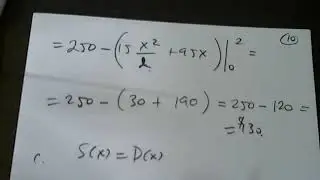 10
= 250 - (15 x²/2 + 95x) |₀² =
= 250 - (30 + 190) = 250 - 120 =
= $130.
c. S(x) = D(x)